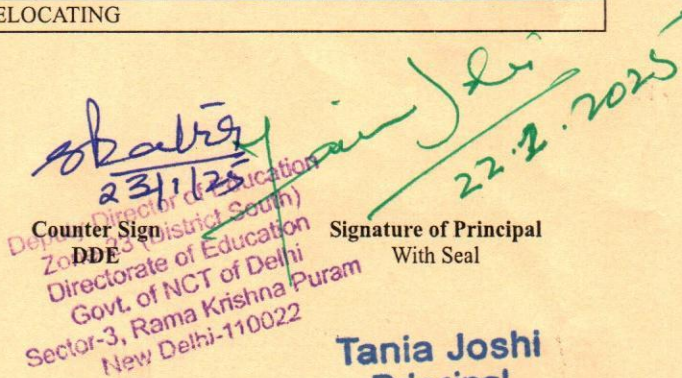 ELOCATING
23/1/25
22.1.2025
Counter Sign
DDE
Signature of Principal
With Seal
Deputy Director of Education
Zone-23 (District South)
Directorate of Education
Govt. of NCT of Delhi
Sector-3, Rama Krishna Puram
New Delhi-110022
Tania Joshi
Principal